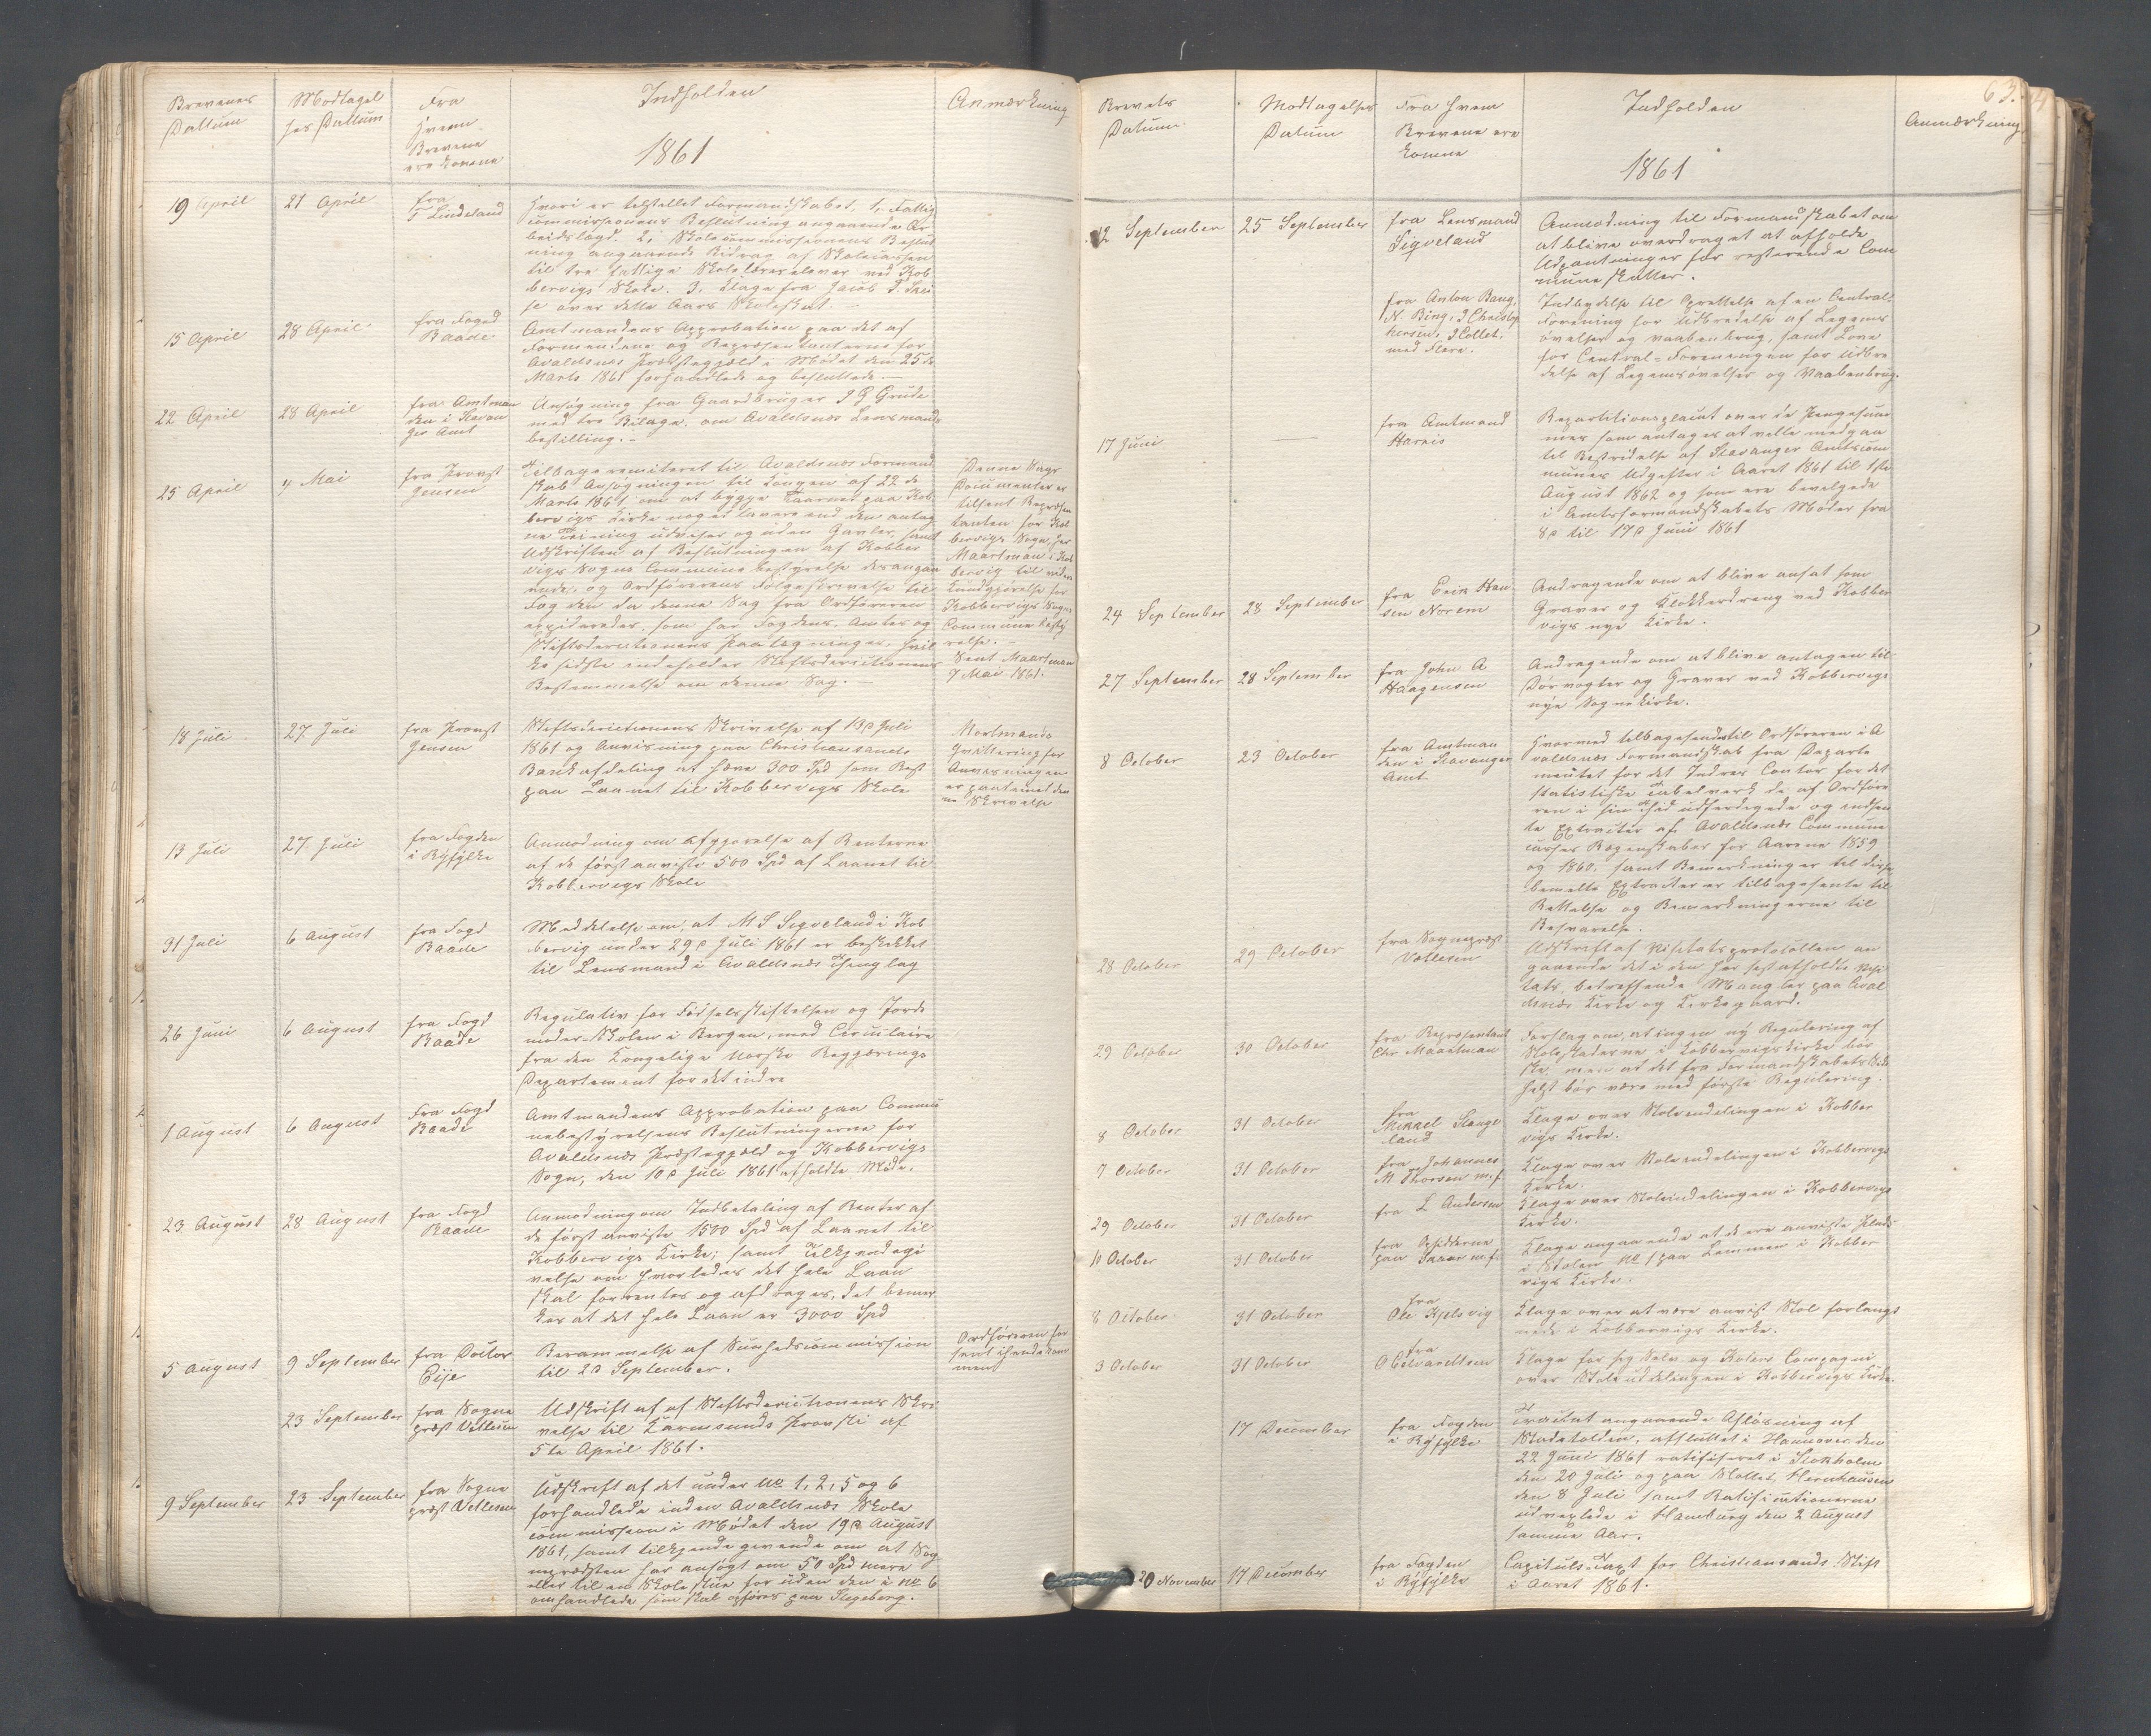 Brevenes
Dattum
Modtagel
ses Dattum
Fra
hvem
Brevene
ere komne
Indholden
1861
Anmærkning
19 April
27 April
fra
T Lindeland
Hvori er tilstellet Formandskabet. 1, Fattig
commissionens Beslutning angaaende Ar
beidslægd. 2, Skolecommissionens Beslut
ning angaaende Bidrag af Skolecassen
til tre fattige Skolelærerelever ved Kob
bervigs Skole. 3, Klage fra Jacob
se over dette Aars Skoleskat. —
15 April
28 April
fra Foged
Baade
Amtmandens Approbation paa det af
Formændene og Repræsentanterne for
Avaldsnæs Præstegjæld i Mødet den 25de
Marts 1861 forhandlede og besluttede. —
22 April
28 April
fra Amtman
den i Stavan
ger Amt
Ansøgning fra Gaardbruger J G Grude
med tre Bilage, om Avaldsnæs Lensmands
bestilling. —
25 April
4 Mai
fra Provst
Jensen
Tilbageremiteret til Avaldsnæs Formand
skab Ansøgningen til Kongen af 22 de
Marts 1861 om at bygge Taarnet paa Kob
bervigs Kirke noget lavere end den antag
ne Teining udviser og uden Gavler, samt
Udskriften af Beslutningen af Kobber
vigs Sogns Communebestyrelse desangaa
ende, og Ordførerens Følgeskrivelse til
Fogden da denne Sag fra Ordføreren
expideredes, som har Fogdens, Amtets og
Stiftsderectionens Paategninger, hvil
ke sidste indeholder Stiftsderectionens
Bestemmelse om denne Sag. —
Denne Sags
Documenter er
tilsent Repræsen
tanten for Kob
bervigs Sogn, Hr
Maartman i Kob
bervig til videre
Kundgjørelse for
Kobbervigs Sogns
Commune besty
relse. —
Sent Maartman
7 Mai 1861.
18 Juli
27 Juli
fra Provst
Jensen
Stiftsderectionens Skrivelse af 13de Juli
1861 og Anvisning paa Christiansands
Bankafdeling at hæve 300 Spd som Rest
paa Laanet til Kobbervigs Skole
Mortmands
Qvittering for
Anvisningen
er paategnet den
ne Skrivelse
13 Juli
27 Juli
fra Fogden
i Ryfylke
Anmodning om Afgjørelse af Renterne
af de først anviste 500 Spd af Laanet til
Kobbervigs Skole
31 Juli
6 August
fra Fogd
Baade
Meddelelse om, at M S Sigveland i Kob
bervig under 29de Juli 1861 er beskikket
til Lensmand i Avaldsnæs Thinglag
26 Juni
6 August
fra Fogd
Baade
Regulativ for Fødselsstiftelsen og Jorde
moder-Skolen i Bergen, med Circulaire
fra den Kongelige Norske Regjerings
Departement for det indre
1 August
6 August
Fra Fogd
Baade
Amtmandens Approbation paa Commu
nebestyrelsens Beslutningerne for
Avaldsnæs Præstegjæld og Kobbervigs
Sogn, den 10de Juli 1861 afholdte Møde.
23 August
28 August
fra Fogd
Baade
Anmodning om Indbetaling af Renter af
de først anviste 1500 Spd af Laanet til
Kobbervigs Kirke; samt Tilkjendegi
velse om hvorledes det hele Laan
skal forrentes og afdrages, det bemær
kes at det hele Laan er 3000 Spd
5 August
9 September
fra Doctor
Eije
Berammelse af Sunhedscommission
til 2de September.
Ordføreren for
sent ihændekom
ment
23 September
fra Sogne
præst Vetlesen
Udskrift af af Stiftsderectionens Skri
velse til Karmsunds Provsti af
5te April 1861.
9 September
23 September
fra Sogne
præst Vetlesen
Udskrift af det under No 1, 2, 5 og 6
forhandlede inden Avaldsnæs Skole
commission i Mødet den 19de August
1861, samt tilkjendegivende om at Sog
nepræsten har ansøgt om 50 Spd mere
eller til en Skolestue for uden den i No 6
omhandlede som skal opføres paa Stegeberg.
63.
Brevets
Datum
Modtagelses
Datum
Fra hvem
Brevene ere
komne
Indholden
1861
Anmærkning
12 September
25 September
fra Lensmand
Sigveland
Anmodning til Formandskabet om
at blive overdraget at afholde
Udpantninger for resterende Com
muneskatter.
fra Anton Bang,
N. Bing, J Christop
hersen, J Collet,
med Flere.
Indbydelse til Oprettelse af en Central-
Forening for Udbredelse af Legems
øvelser og Vaabenbrug, samt Love
for Central-Foreningen for Udbre
delse af Legemsøvelser og Vaabenbrug.
17 Juni
—
fra Amtmand
Harris
Repartitionsplacat over de Pengesum
mer som antages at ville medgaa
til Bestridelse af Stavanger Amtscom
munes Udgifter i Aaret 1861 til 1ste
August 1862 og som ere bevilgede
i Amtsformandskabets Møder fra
8de til 17de Juni 1861
24 September
28 September
fra Erik Han
sen Norem
Andragende om at blive ansat som
Graver og Klokkerdreng ved Kobber
vigs nye Kirke.
27 September
28 September
fra John A
Haagensen
Andragende om at blive antagen til
Dørvogter og Graver ved Kobbervigs
nye Sognekirke.
8 October
23 October
fra Amtman
den i Stavanger
Amt
Hvormed tilbagesendes til Ordføreren i A
valdsnæs Formandskab fra Departe
mentet for det Indres Contor for det
statistiske Tabelverk de af Ordføre
ren i sin Thid udferdigede og indsen
te Extracter af Avaldsnæs Commune
casses Regnskaber for Aarene 1859
og 1860. samt Bemerkninger til disse
bemelte Extracter er tilbagesente til
Rettelse og Bemerkningerne til
Besvarelse.
28 October
29 October
fra Sognepræst
Vetlesen
Udskrift af Visitatsprotocollen an
gaaende det i den her sist afholdte Visi
tats, betreffende Mangler paa Aval
dsnæs Kirke og Kirkegaard.
29 October
30 October
fra Repræsentant
Chr Maartman
Forslag om, at ingen ny Regulering af
Stolestaderne i Kobbervigskirke bør
ske, men at det fra Formandskabets Side
helst bør være med første Regulering.
8 October
31 October
fra
Mikkel Stange
land
Klage over Stoleindelingen i Kobber
vigs Kirke.
7 October
31 October
fra Johannes
M Thorsen m.f.
Klage over Stoleindelingen i Kobbervigs
Kirke.
29 October
31 October
fra L Andersen
Klage over Stoleindelingen i Kobbervigs
Kirke.
10 October
31 October
fra Opsidderne
paa m.fl.
Klage angaaende at de ere anviste Plads
i Stolen No 1 paa Lemmen i Kobber
vigs Kirke.
8 October
31 October
fra
Ole Kjelsvig
Klage over at være anvist Stol forlangt
nede i Kobbervigs Kirke.
3 October
31 October
fra
Klage for sig Selv og Compagni
over Stoleuddelingen i Kobbervigs Kirke.
17 December
fra Fogden
i Ryfylke
Tractat angaaende Afløsning af
Stadetolden, afsluttet i Hannover den
22 Juni 1861 ratifiseret i Stokholm
den 20 Juli og paa Slottet Hernhausen
den 8 Juli samt Ratificationerne
udvexlede i Hamburg den 2 August
samme Aar.
20 November
17 December
fra Fogden
i Ryfylke
Capitels-Taxt for Christiansands Stift
i Aaret 1861.